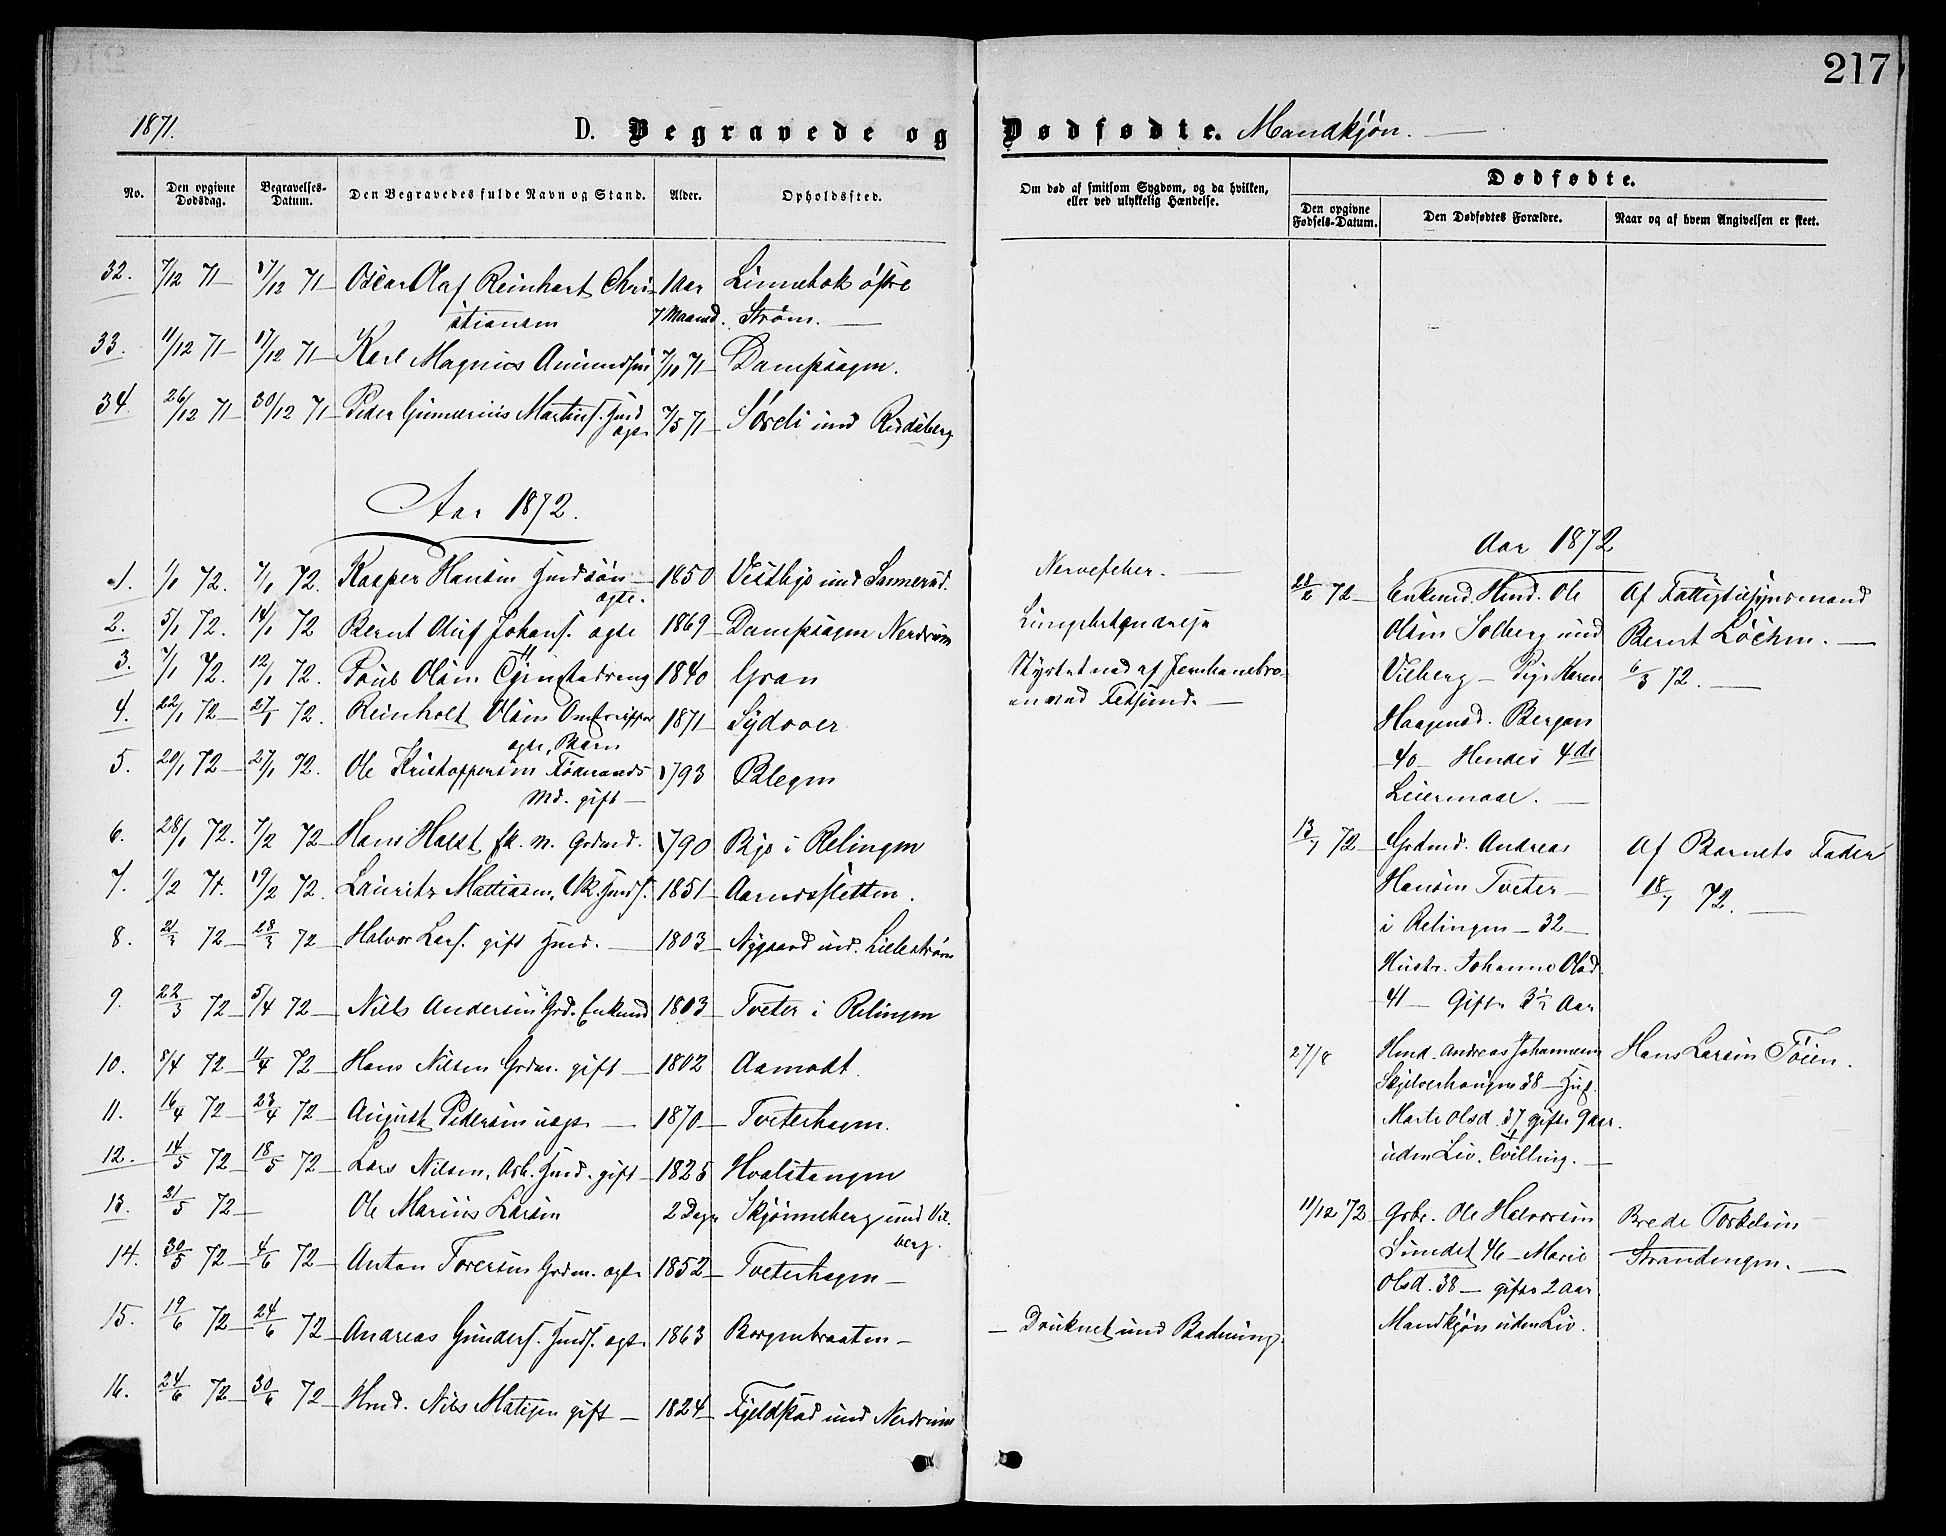 217
1871.
D. Begravede og Dødfødte. Mandkjøn.
No.
Den opgivne Dødsdag.
Begravelses-Datum.
Den Begravedes fulde Navn og Stand.
Alder.
Opholdssted.
Om død af smitsom Sygdom, og da hvilken, eller ved ulykkelig Hændelse.
Dødfødte.
Den opgivne Fødsels-Datum.
Den Dødfødtes Forældre.
Naar og af hvem Angivelsen er skeet.
32. 7/12 71 17/12 71 Oscar Olaf Reinhart Chri- 1 Aar Linnebok østre
stiansen 7 Maaned. Strøm.
33. 11/12 71 17/12 71 Karl Magnus Amundsen 7/10 71 Dampsagen.
34. 26/12 71 30/12 71 Peder Gunnerius Martins. Husd 7/5 71 Sørli und
ægte
Aar 1872.
Aar 1872
1. 1/1 72. 7/1 72. Kasper Hansen Husdsøn 1850 Vestbye und Sannerud. Nervefeber.
ægte.
2. 5/1 72. 14/1 72 Bernt Oluf Johans. ægte 1869 Dampsagen Nerdrum
3. 7/1 72. 12/1 72. Poul Olsen 1840 Gran Styrtet ned af Jernbanebro-
en ved Fetsund.
4. 22/1 72 27/1 72. Reinholt Olsen 1871 Sydover
ægte, Barn
5. 20/1 72 27/1 72. Ole Kristoffersen Føderaads 1793 Blegen
Md. gift
6. 28/1 72. 7/2 72 Hans Halst fh. m. Grdmd. 1790 Bye i Relingen
7. 1/2 71. 19/2 72. Lauritz Mattiasen, Husds. 1851 Aarnessletten.
8. 21/3 72 28/3 72 Halvor Lars. gift Husd. 1803 Nygaard und. Lillestrøm
9. 22/3 72 5/4 72 Niels Andersen Grd. Enkemd 1803 Tveter i Relingen
10. 5/4 72 11/4 72 Hans Nilsen Grdm. gift 1802 Aamodt.
11. 16/4 72 23/4 72 August Pedersen uægte 1870 Tveterhagen.
12. 14/5 72 18/5 72 Lars Nilsen, Arb. Husd. gift 1825 Hvalstangen
13. 31/5 72 Ole Marius Larsen 2 Dage Skjønneberg und Vil-
berg.
14. 30/5 72 4/6 72 Anton Toresen Grdm. ægte 1852 Tveterhagen
15. 19/6 72 24/6 72 Andreas Gunders. Husds. ægte 1863 Borgenbraaten Druknet und Badning.
16. 24/6 72 30/6 72 Husd. Nils Matisen gift 1824 Fjeldstad und Nerdrum
28/2 72 Enkemd. Husd. Ole
Olsen Solberg und
Vilberg Pige Karen
Haagensd. Bergan
40 Hendes 4de
Leiermaal.
Af Fattigtilsynsmand
Bernt Løchen.
6/3 72.
13/7 72 Grdmd. Andreas
Hansen Tveter
i Relingen 32
Hustr. Johanne Olsd.
41 Gifte 3½ Aar
Af Barnets Fader
18/7 72.
27/8 Husd. Andreas Johannesen
38 Hus.
Marte Olsd. 37 gifte 9 aar.
uden Liv. Tvilling.
Hans Larsen Tøien.
11/12 72 Grbr. Ole Halvorsen
Sundet 46 Marie
Olsd. 38 gifte 2 aar
Mandkjøn uden Liv.
Brede Torkelsen
Strandengen.